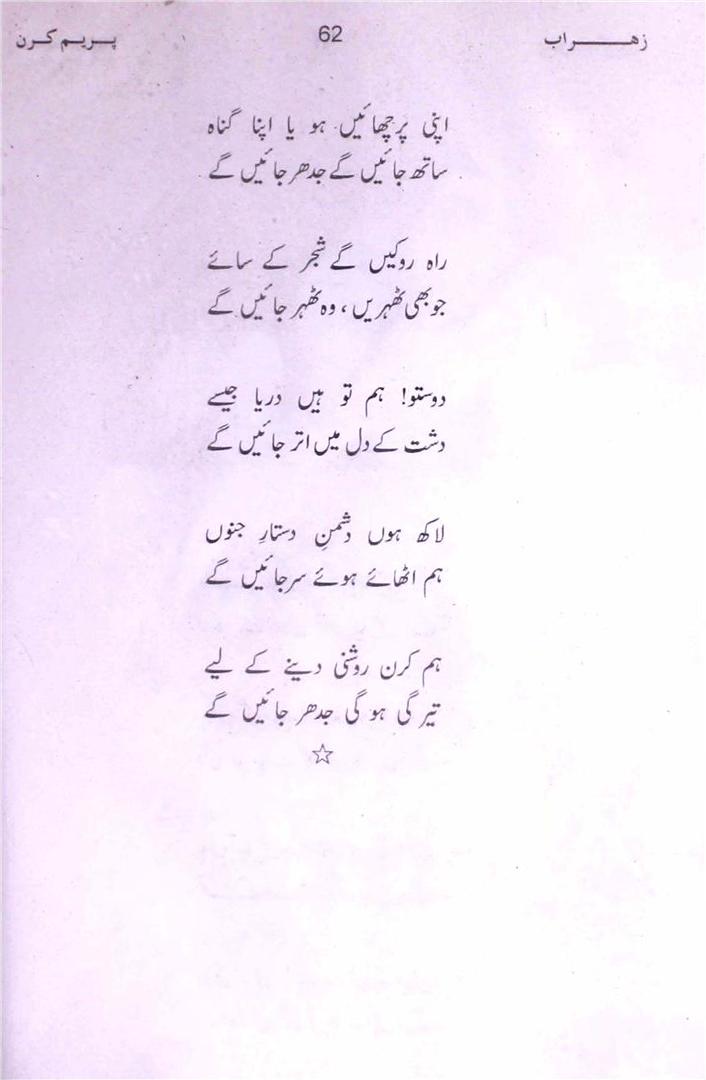 زهراب 62 پریم کرن
اپنی پَرچھائیں ہو یا اپنا گناہ
ساتھ جائیں گے جدھر جائیں گے
راہ روکیں گے شجر کے سائے
جو بھی ٹھہریں، وہ ٹھہر جائیں گے
دوستو! ہم تو ہیں دریا جیسے
دشت کے دل میں اتر جائیں گے
لاکھ ہوں دشمنِ دستارِ جنوں
ہم اٹھائے ہوئے سر جائیں گے
ہم کرن روشنی دینے کے لیے
تیرگی ہو گی جدھر جائیں گے
☆